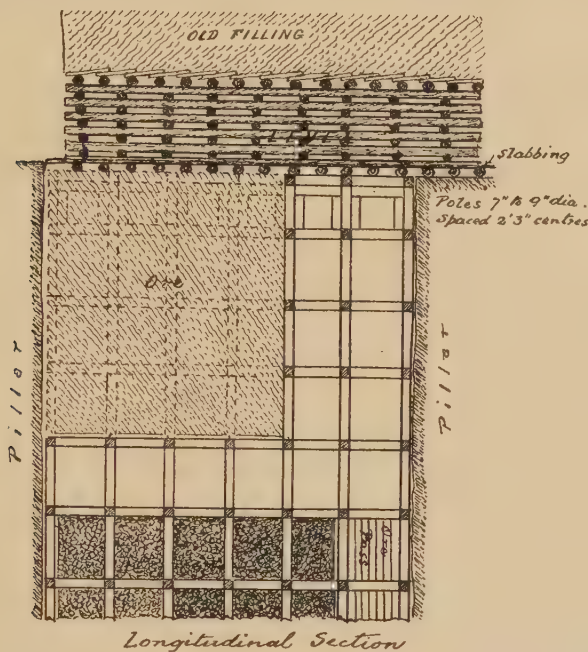 OLD FILLING
LEVEL
Slabbing
Poles 7" to 9" dia.
Spaced 2'3" centres
Ore
Pillar
Pillar
Ore
Pass
Longitudinal Section